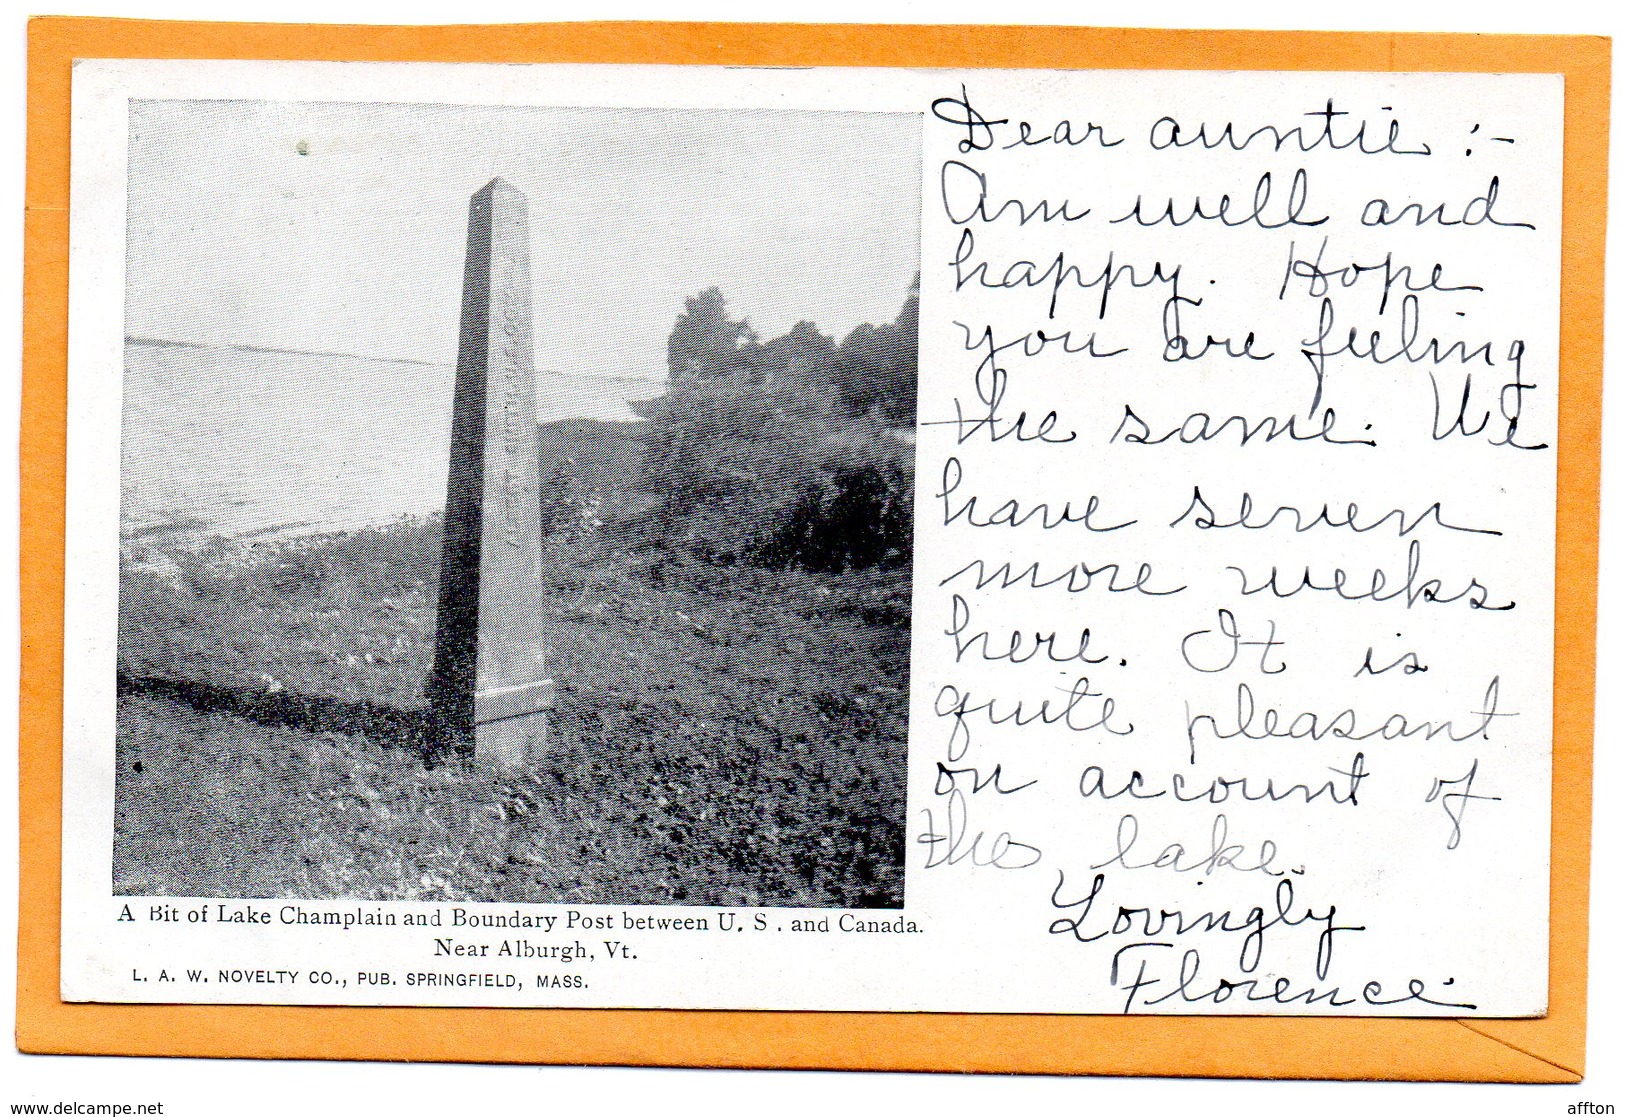 Dear auntie :-
Am well and
happy. Hope
you are feeling
the same. We
have seven
more weeks
here. It is
quite pleasant
on account of
the lake.
Lovingly
Florence.
A Bit of Lake Champlain and Boundary Post between U. S. and Canada.
Near Alburgh, Vt.
L. A. W. NOVELTY CO., PUB. SPRINGFIELD, MASS.
www.delcampe.net
affton